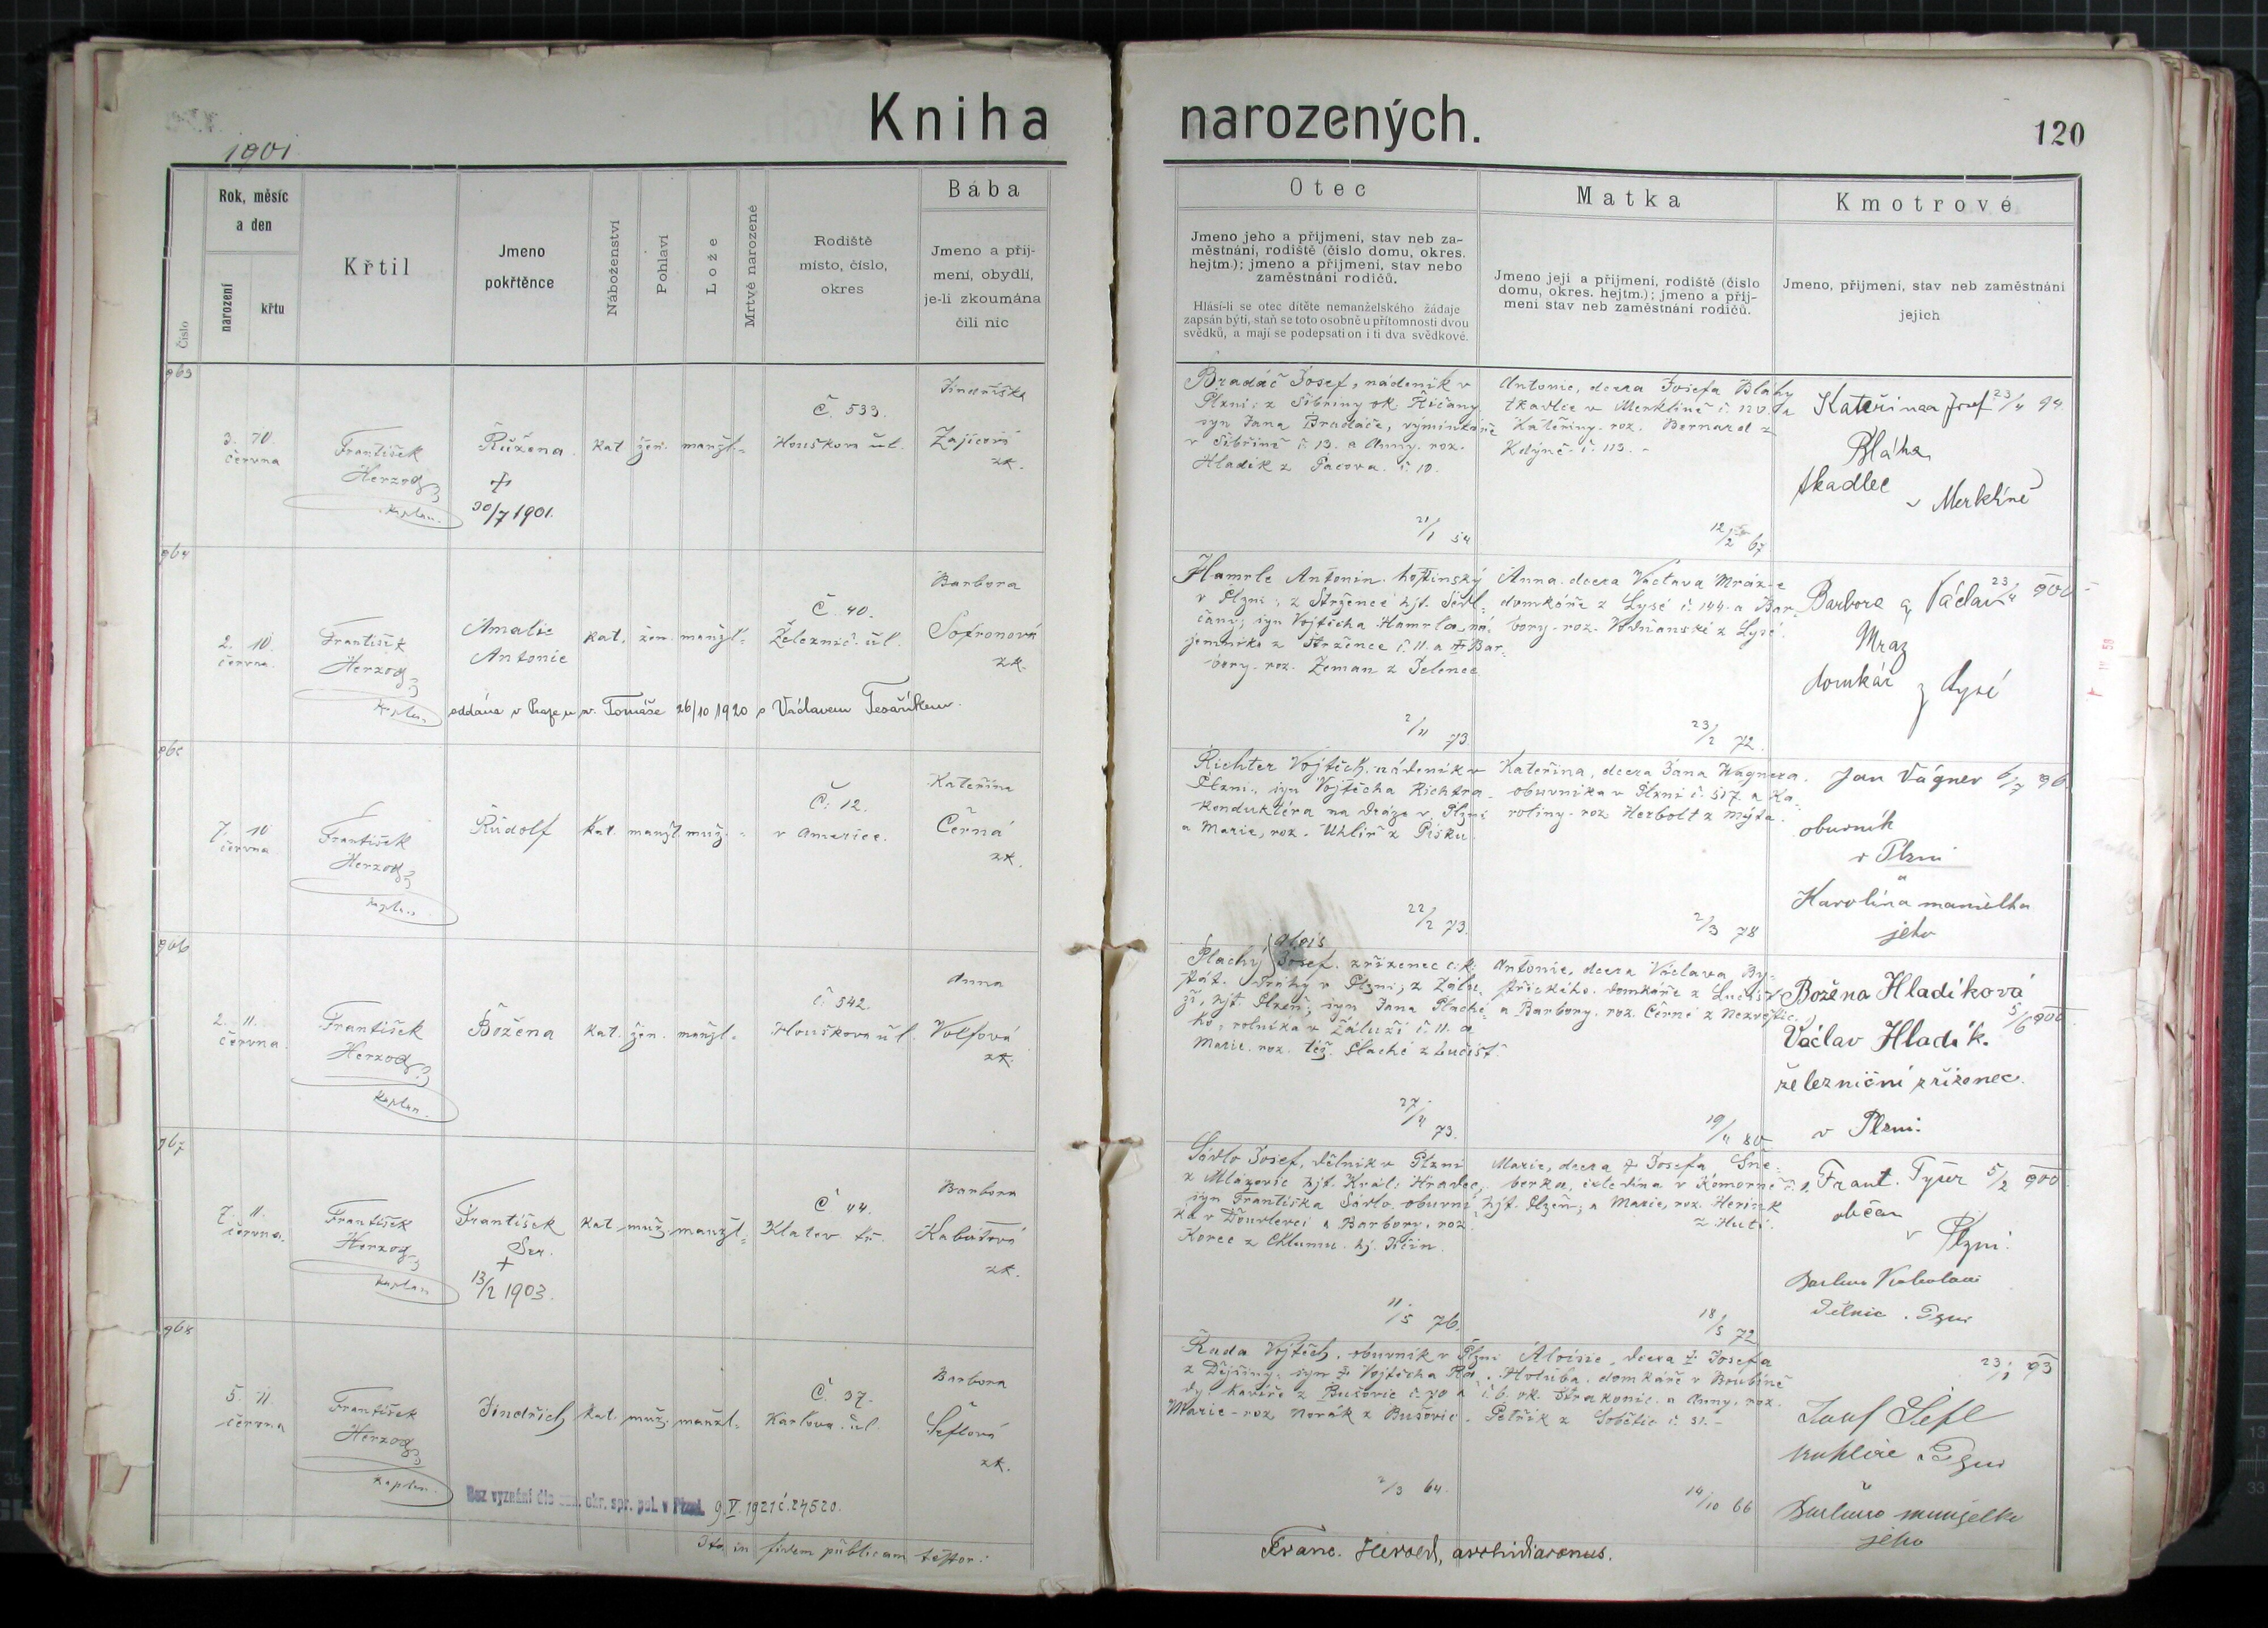 Kniha narozených.
120
1901.
Číslo
Rok, měsíc
a den
narození
křtu
Křtil
Jmeno
pokřtěnce
Náboženství
Pohlaví
Lože
Mrtvě narozené
Rodiště
místo, číslo,
okres
Bába
Jmeno a příj-
mení, obydlí,
je-li zkoumána
čili nic
Otec
Jmeno jeho a příjmení, stav neb za-
městnání, rodiště (číslo domu, okres.
hejtm.); jmeno a příjmení, stav nebo
zaměstnání rodičů.
Hlásí-li se otec dítěte nemanželského žádaje
zapsán býti, staň se toto osobně u přítomnosti dvou
svědků, a mají se podepsati on i ti dva svědkové.
Matka
Jmeno její a příjmení, rodiště (číslo
domu, okres. hejtm.); jmeno a příj-
mení stav neb zaměstnání rodičů.
Kmotrové
Jmeno, příjmení, stav neb zaměstnání
jejich
963
3. 10.
června
František
Herzog
kaplan.
Růžena
+
30/7 1901.
kat žen. manžl.
Č. 533.
Houškova ul.
Jindřiška
Zajícová
zk.
Bradáč Josef, nádeník v
Plzni; z Sibřiny ok. Říčany
syn Jana Bradáče, výminkáře
v Sibřině č. 13. a Anny. roz.
Hladík z Pacova. č. 10.
21/1 54
Antonie, dcera Josefa Bláhy
tkadlce v Merklíně č. 120. a
Kateřiny. roz. Bernard z
Kdýně č. 113. -
12/2 67
Kateřina a Josef 23/4 94
Bláha
tkadlec
v Merklíně
964
2. 10.
června.
František
Herzog
kaplan
Amalie
Antonie
kat. žen. manžl.
Č. 40.
Železnič. ul.
Barbora
Sofronová
zk.
oddána v Praze u sv. Tomáše 26/10 1920 s Václavem Tesaříkem.
Hamrle Antonín. hostinský
v Plzni; z Strženec hjt. Sedl-
čany; syn Vojtěcha Hamrla, ná-
jemníka z Strženec č. 11. a Bar-
bory. roz. Zeman z Jelenec
2/4 73.
Anna. dcera Václava Mráze
domkáře z Lysé č. 144. a Bar-
bory. roz. Vodňanské z Lysé.
23/2 72.
Barbora a Václav 23/4 900
Mraz
domkář z Lysé
965
7. 10
června
František
Herzog
kaplan
Rudolf
kat. manžl. muž.
Č. 12.
v Americe.
Kateřina
Černá
zk.
Richter Vojtěch. nádeník v
Plzni., syn Vojtěcha Richtra
konduktéra na dráze v Plzni
a Marie, roz. Uhlíř z Písku.
22/2 73.
Kateřina, dcera Jana Wágnera.
obuvníka v Plzni č. 517. a Ka-
roliny. roz. Herbolt z Mýta.
2/3 78
Jan Vágner 6/7 96
obuvník
v Plzni
a
Karolína manželka
jeho
966
2. 11.
června.
František
Herzog
kaplan.
Božena
kat. žen. manžl.
č. 542.
Houškova ul.
Anna
Volfová
zk.
Alois
Plachý Josef. zřízenec c. k.
stát. dráhy v Plzni; z Zálu-
ží, hjt. Plzeň; syn Jana Plaché-
ho, rolníka v Záluží č. 11. a
Marie. roz. též. Plaché z Lučišť.
27/4 73.
Antonie, dcera Václava By-
střického. domkáře z Lučišť
a Barbory. roz. Černé z Nezvěstic.
19/4 80
Božena Hladíková
5/6 900
Václav Hladík.
železniční zřízenec.
v Plzni.
967
7. 11.
června.
František
Herzog
kaplan
František
Ser.
+
13/2 1903.
kat. muž. manžl.
Č 44.
Klatov. tř.
Barbora
Kabátová
zk.
Sádlo Josef, dělník v Plzni
z Mlázovic hjt. Král. Hradec,
syn Františka Sádlo. obuvní-
ka v Doudlevci a Barbory. roz.
Korec z Chlumu. hj. Jičín.
11/5 76.
Marie, dcera + Josefa Šne-
berka, čeledína v Komorně č. 1.
hjt. Plzeň; a Marie, roz. Herink
z Huti.
18/5 72
Frant. Tyšer 5/2 900
občan
v Plzni.
968
5. 11.
června
František
Herzog
kaplan.
Jindřich
kat. muž. manžl.
Č. 37.
Karlova. ul.
Barbora
Šeflová
zk.
Bez vyznání dle ozn. okr. spr. pol. v Plzni. 9. V. 1921 č. 24520.
Rada Vojtěch. obuvník v Plzni
z Dýšiny. syn + Vojtěcha Ra-
dy. kováře z Bušovic č. 70 a
Marie. roz. Novák z Bušovic.
2/3 64.
Aloisie, dcera + Josefa
Holuba. domkáře v Boubíně
č. 6. ok. Strakonic. a Anny. roz.
Petřík z Sobětic č. 31. -
14/10 66
23/1 93
Josef Šefl
truhlář Plzni
Barbora manželka
jeho
Ita in fidem publicam testor:
Franc. Herold, archidiaconus.